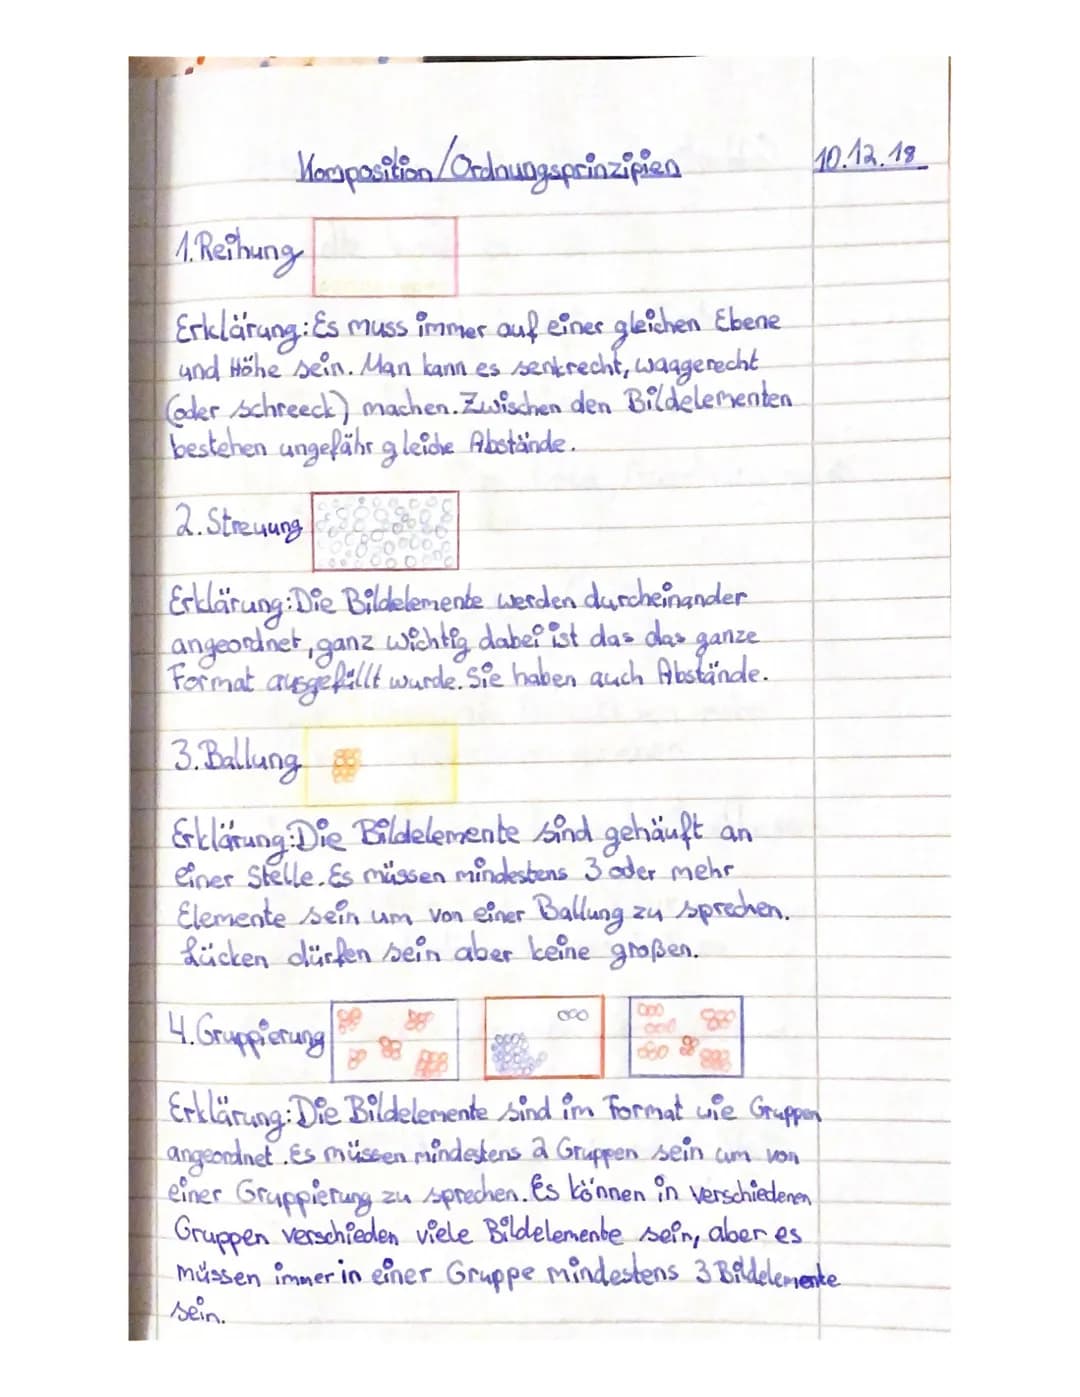 Komposition/Ordnungsprinzipien
10.12.18
1. Reihung
Erklärung: Es muss immer auf einer gleichen Ebene
und Höhe sein. Man kann es senkrecht, waagerecht
(oder schreeck) machen. Zwischen den Bildelementen
bestehen ungefähr gleiche Abstände.
2. Streuung
Erklärung: Die Bildelemente werden durcheinander
angeordnet, ganz wichtig dabei ist das das ganze
Format ausgefüllt wurde. Sie haben auch Abstände.
3. Ballung
Erklärung: Die Bildelemente sind gehäuft an
einer Stelle. Es müssen mindestens 3 oder mehr
Elemente sein um von einer Ballung zu sprechen.
Lücken dürfen sein aber keine großen.
4. Gruppierung
Erklärung: Die Bildelemente sind im Format wie Gruppen
angeordnet. Es müssen mindestens 2 Gruppen sein um von
einer Gruppierung zu sprechen. Es können in verschiedenen
Gruppen verschieden viele Bildelemente sein, aber es
müssen immer in einer Gruppe mindestens 3 Bildelemente
sein.